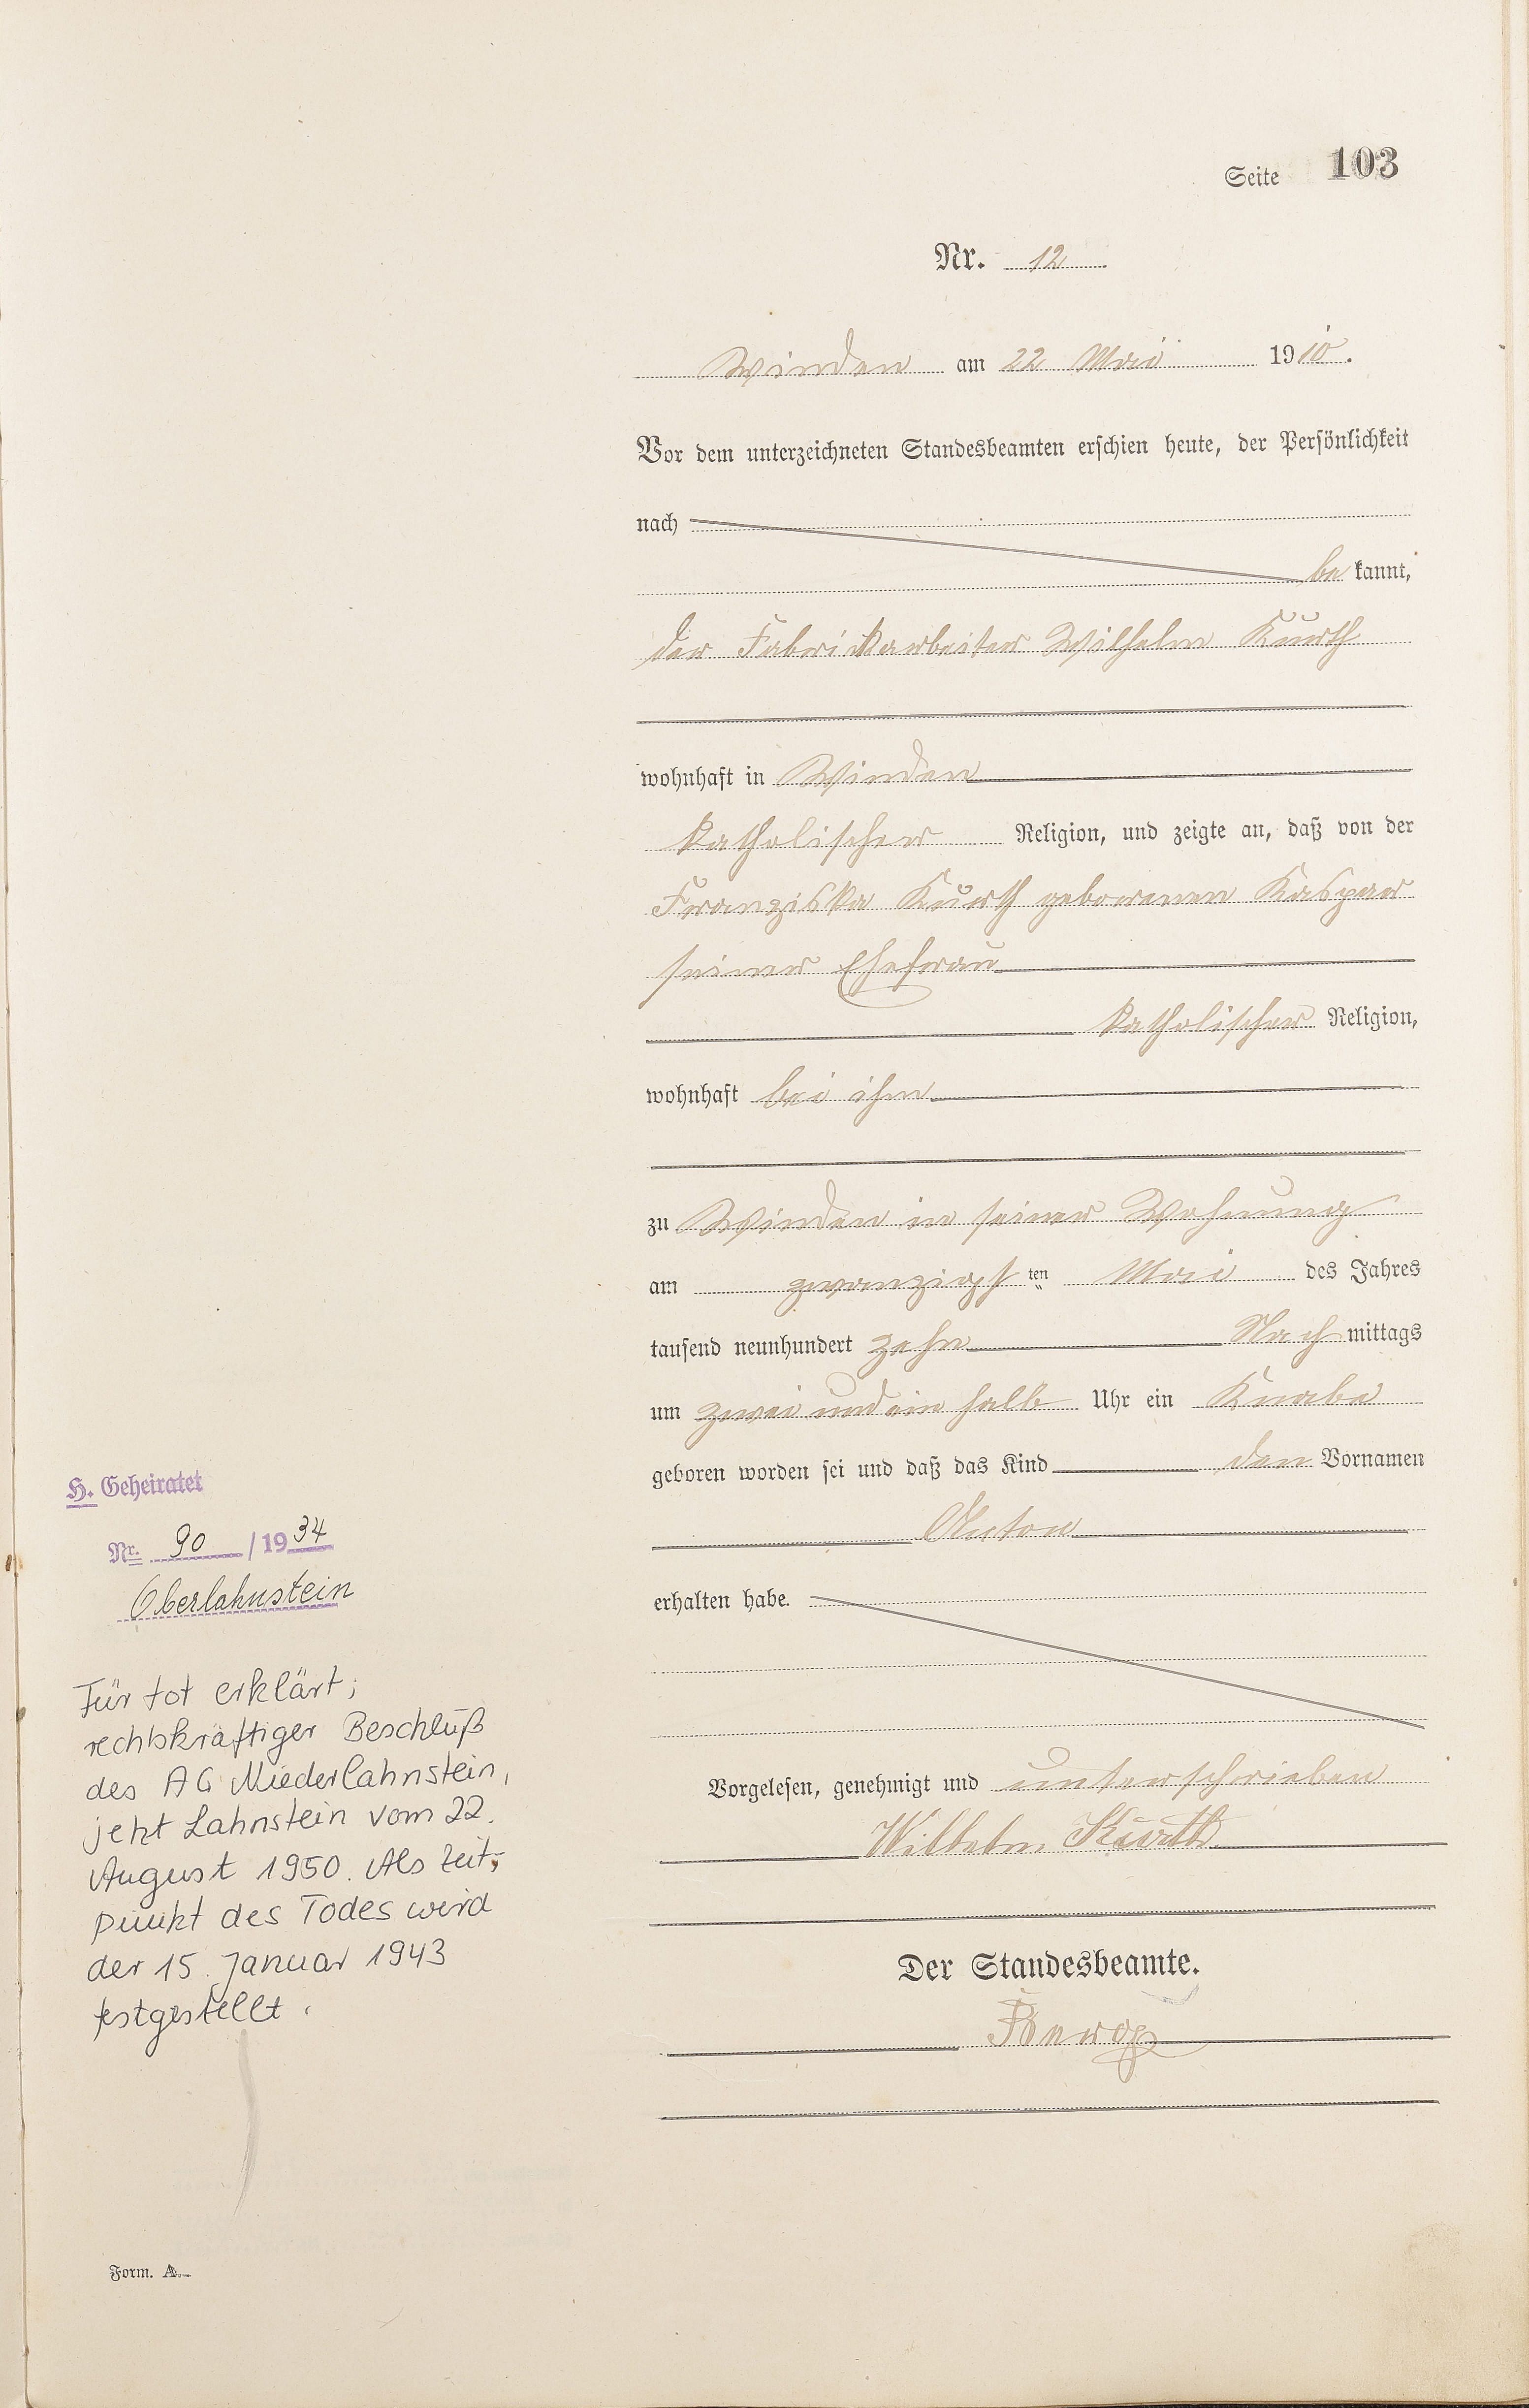 Seite 103
Nr. 12
Winden am 22 Mai 1910.
Vor dem unterzeichneten Standesbeamten erschien heute, der Persönlichkeit
nach
be kannt,
der Fabrikarbeiter Wilhelm Kurth
wohnhaft in Winden
katholischer Religion, und zeigte an, daß von der
Franziska Kurth geborenen Kaspar
seiner Ehefrau
katholischer Religion,
wohnhaft bei ihm
zu Winden in seiner Wohnung
am zwanzigsten Mai des Jahres
tausend neunhundert zehn Nach mittags
um zwei und ein halb Uhr ein Knabe
geboren worden sei und daß das Kind den Vornamen
Anton
erhalten habe.
Vorgelesen, genehmigt und unterschrieben
Wilhelm Kurth
Der Standesbeamte.
H. Geheiratet
Nr. 90 / 1934
Oberlahnstein
Für tot erklärt;
rechtskräftiger Beschluß
des AG Niederlahnstein,
jetzt Lahnstein vom 22.
August 1950. Als Zeit-
punkt des Todes wird
der 15. Januar 1943
festgestellt.
Form. A.